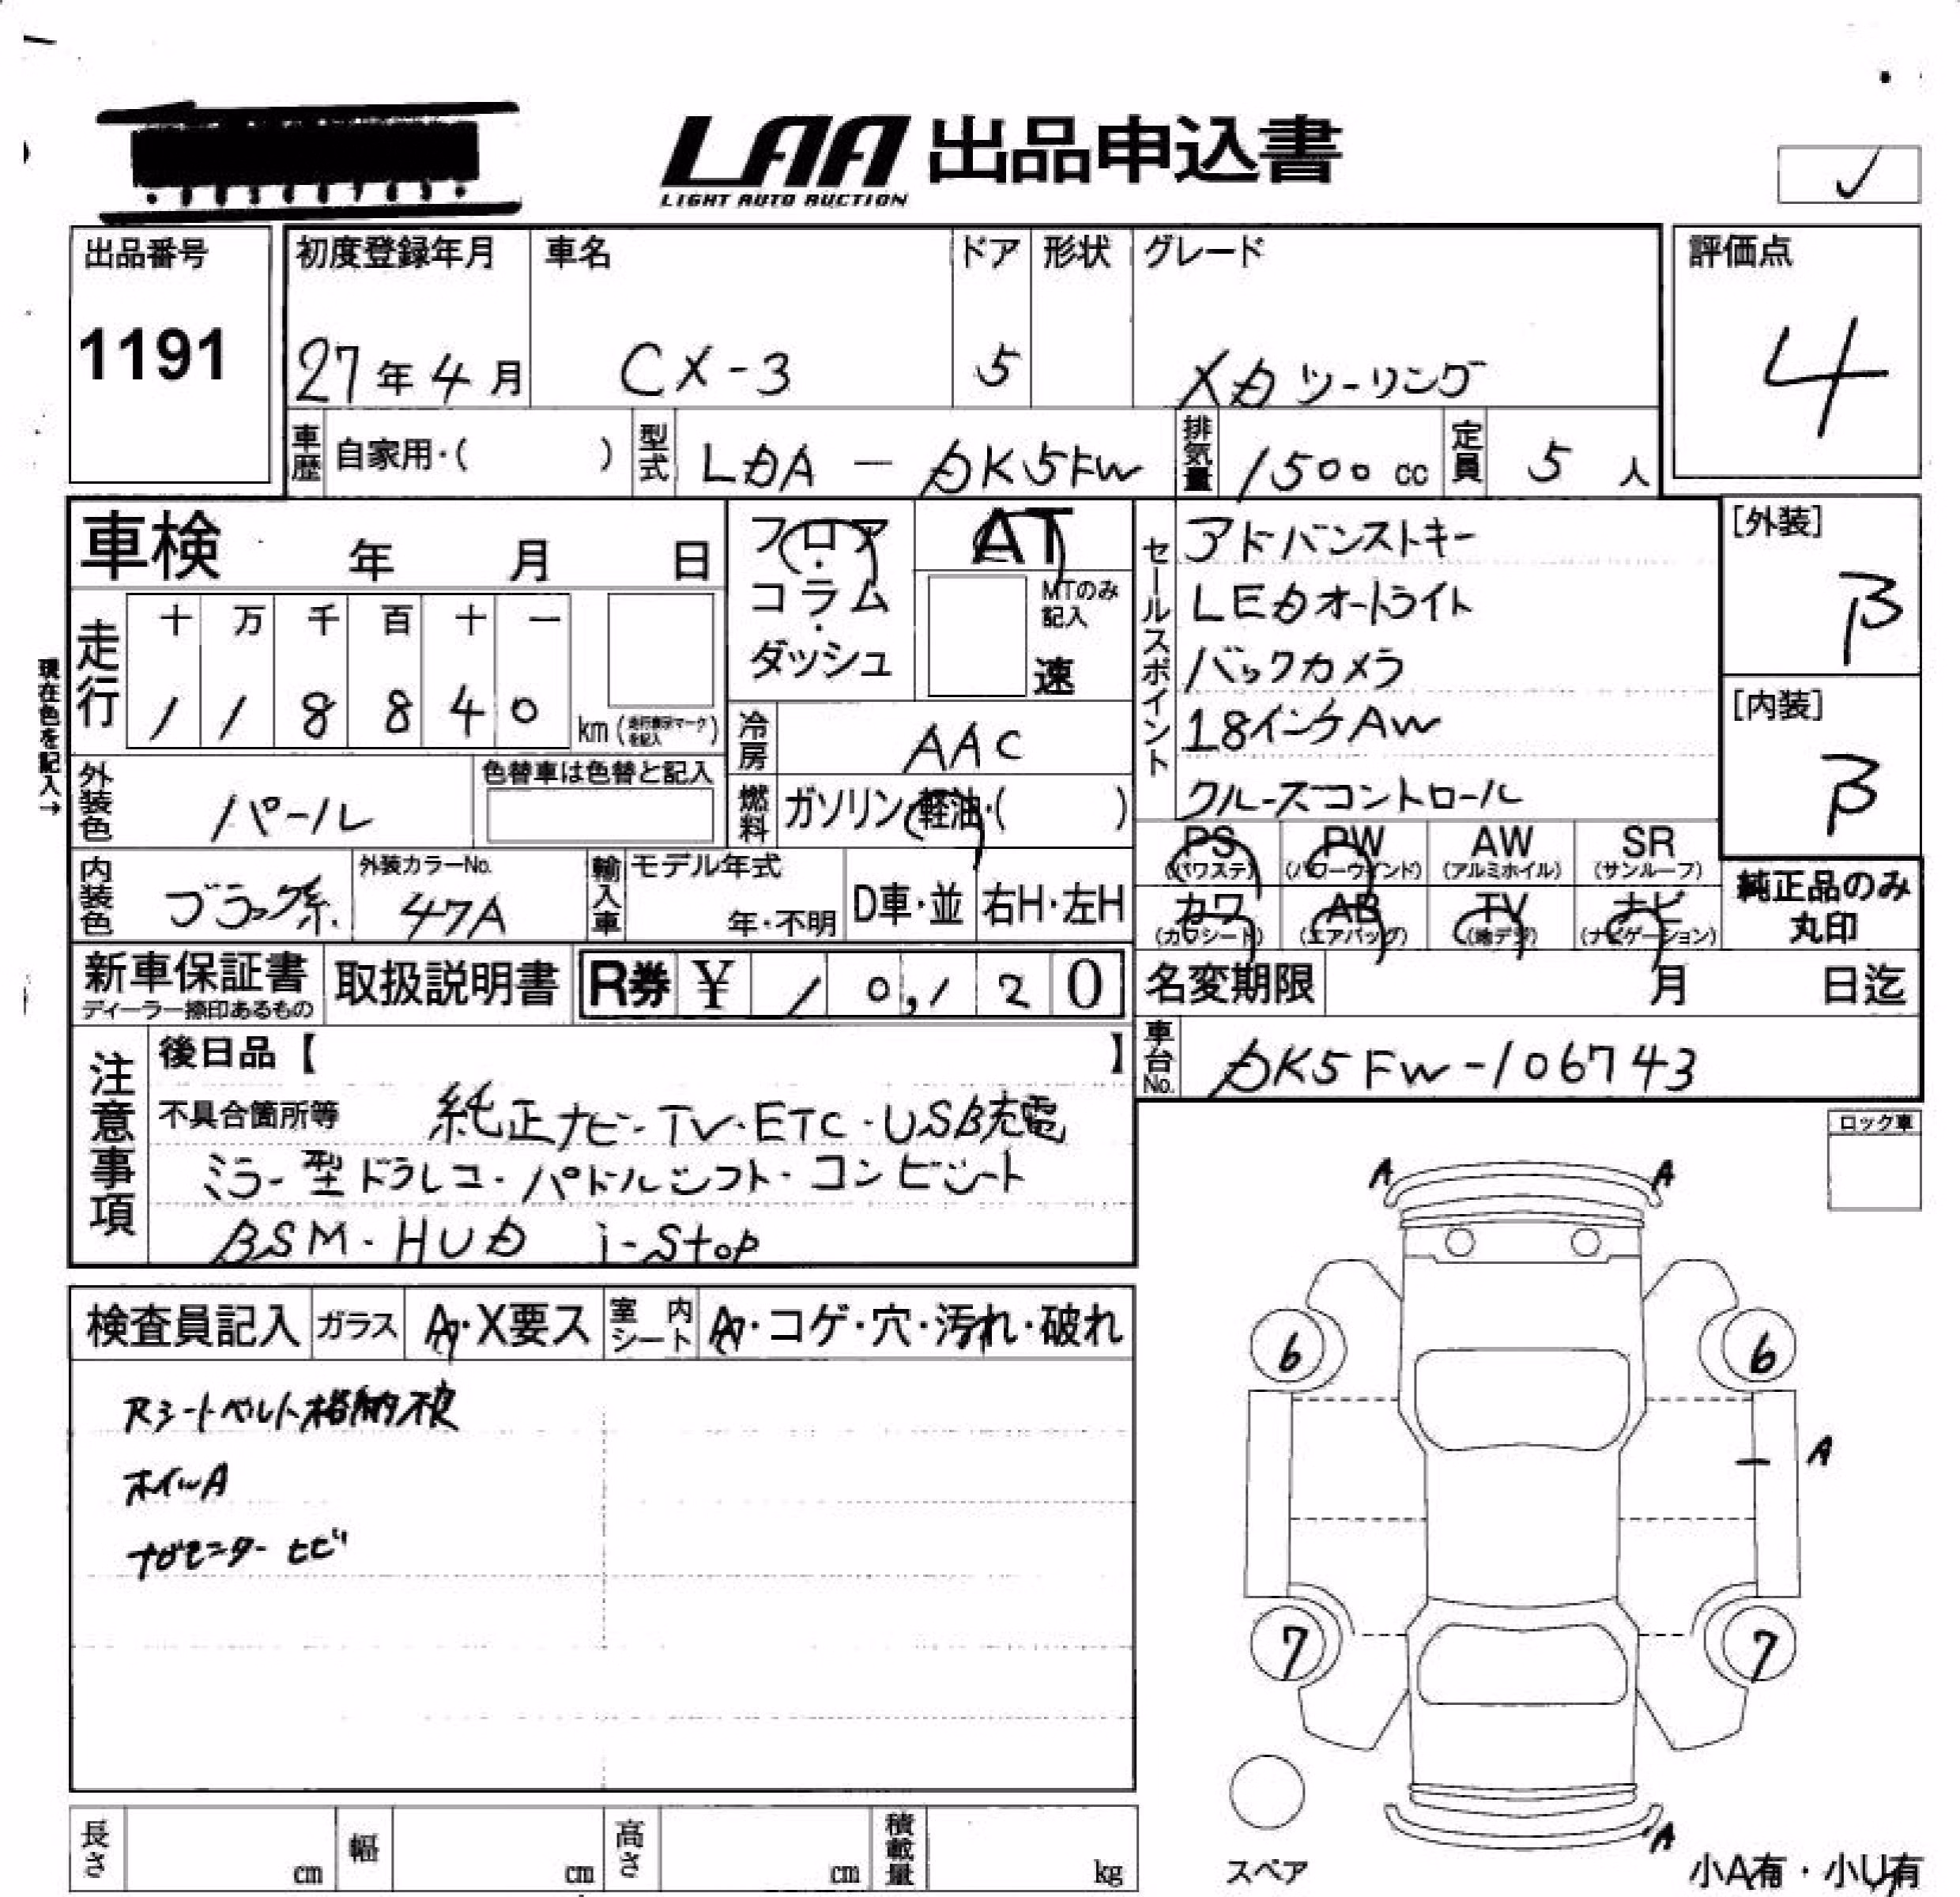 LAA 出品申込書
LIGHT AUTO AUCTION
出品番号
1191
初度登録年月
27年4月
車名
CX-3
ドア
5
形状
グレード
XDツーリング
評価点
4
車歴 自家用・( )
型式 LDA-DK5FW
排気量 1500cc
定員 5人
車検 年 月 日
フロア・コラム・ダッシュ
AT
MTのみ記入
速
セールスポイント
アドバンストキー
LEDオートライト
バックカメラ
18インチAW
クルーズコントロール
[外装]
B
[内装]
B
現在色を記入→
走行
十 万 千 百 十 一
1 1 8 8 4 0
km (走行表示マークを記入)
冷房 AAC
外装色 パール
色替車は色替と記入
燃料 ガソリン・軽油・( )
PS (パワステ)
PW (パワーウインド)
AW (アルミホイル)
SR (サンルーフ)
カワ (カワシート)
AB (エアバッグ)
TV (地デジ)
ナビ (ナビゲーション)
純正品のみ
丸印
内装色 ブラック系
外装カラーNo.
47A
輸入車
モデル年式
年・不明
D車・並
右H・左H
新車保証書
ディーラー捺印あるもの
取扱説明書
R券 ¥ 10,120
名変期限 月 日迄
車台No. DK5FW-106743
注意事項
後日品【 】
不具合箇所等 純正ナビ・TV・ETC・USB充電
ミラー型ドラレコ・パドルシフト・コンビシート
BSM・HUD i-stop
ロック車
検査員記入
ガラス A・X要ス
室内シート A・コゲ・穴・汚れ・破れ
Rシートベルト格納不良
ホイルA
ナビモニターヒビ
A A
6 6
A
7 7
A
スペア
小A有・小U有
長さ cm
幅 cm
高さ cm
積載量 kg